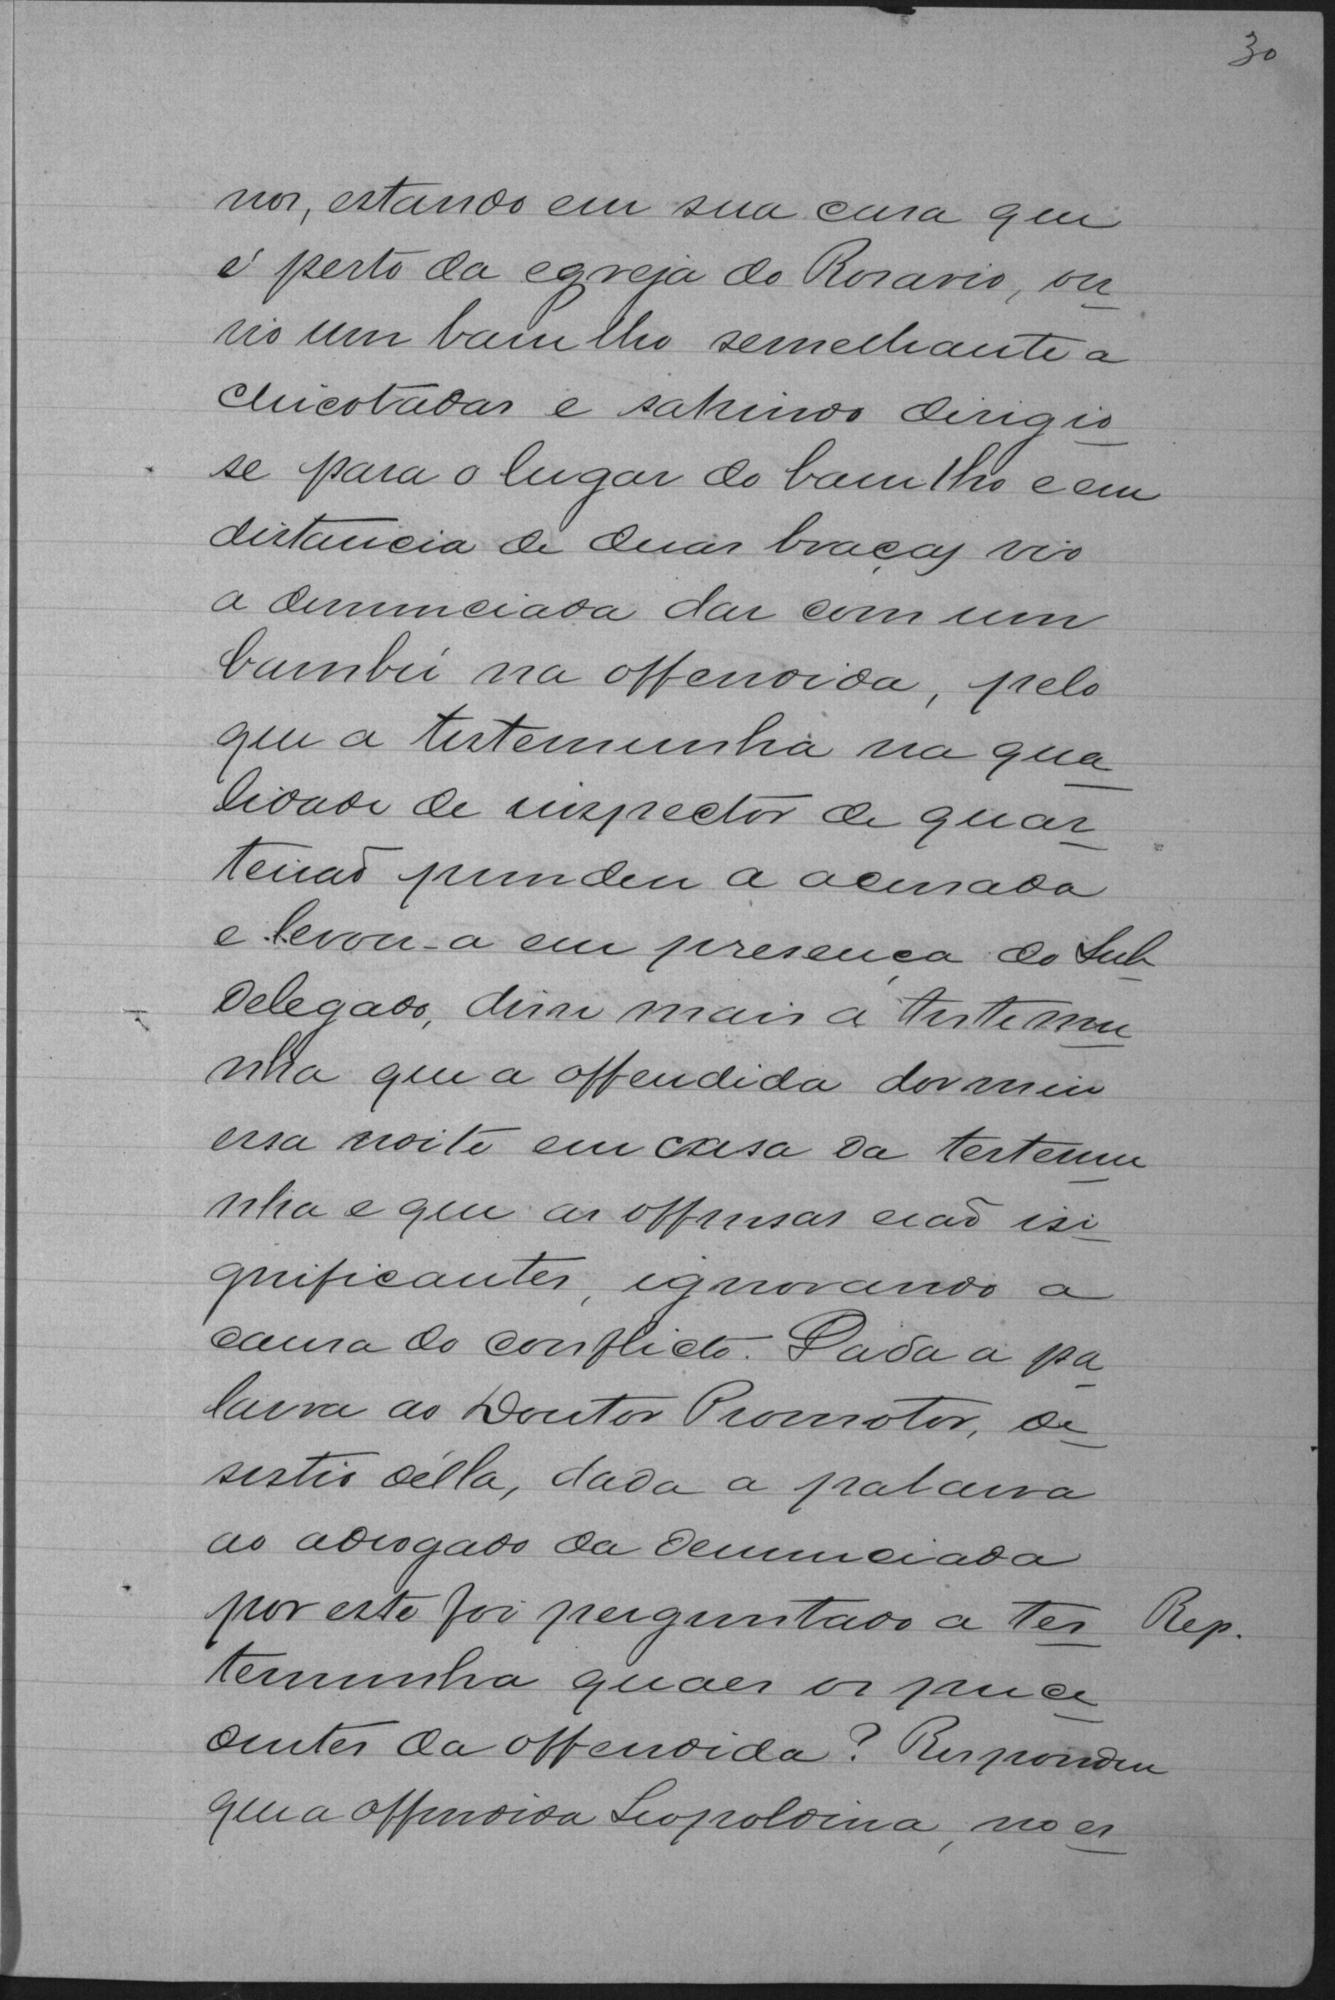 30
nos, estando em sua casa que
é perto da egreja do Rosario, ou
vio um barulho semelhante a
chicotadas e sahindo dirigio
se para o lugar do barulho e em
distancia de duas braças vio
a denunciada dar com um
bambú na offendida, pelo
que a testemunha na qua
lidade de inspector de quar
teirão prendeu a acusada
e levou-a em presença do Sub
Delegado, disse mais a testemu
nha que a offendida dormiu
essa noite em casa da testemu
nha e que as offensas erão isi
gnificantes, ignorando a
causa do conflicto. Dada a pa
lavra ao Doutor Promotor, de
sistio della, dada a palavra
ao advogado da denunciada
por este foi perguntado a tes Rep.
temunha quaes os prece
dentes da offendida? Respondeu
que a offendida Leopoldina, no es